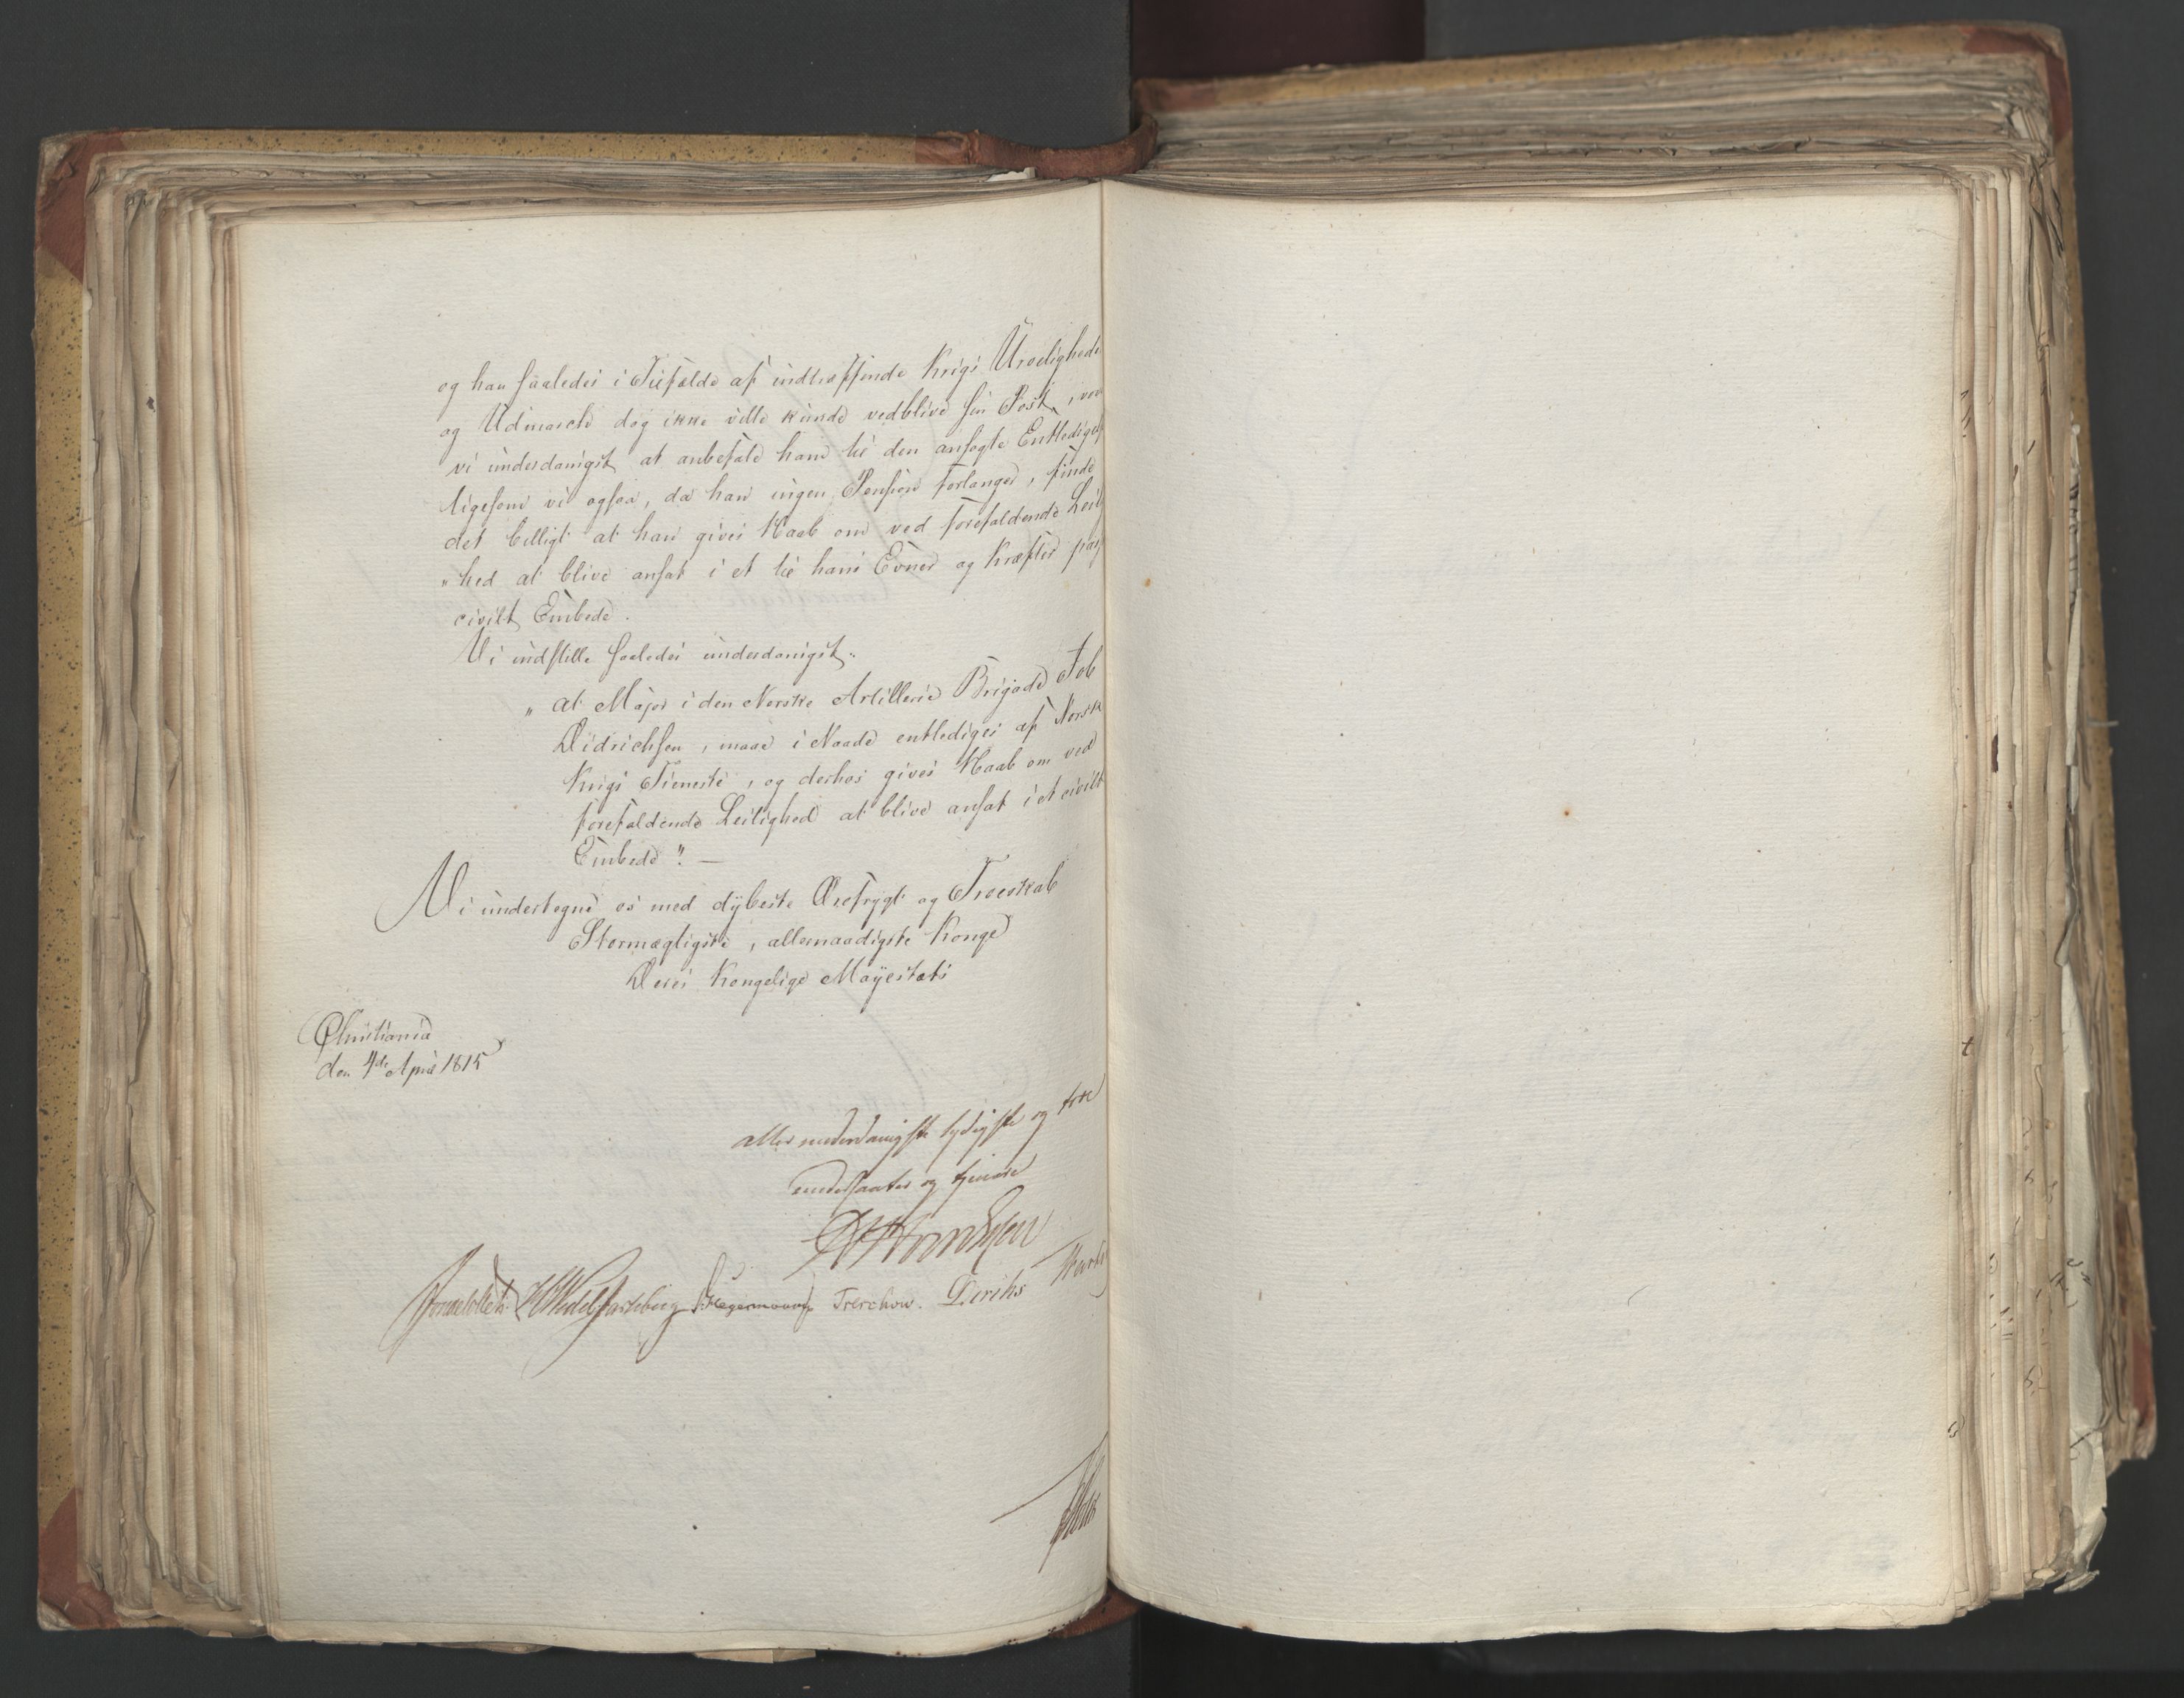 og han saaledes i Tilfælde af indtræffende Krigs Uroelighede
og Udmarche dog ikke ville kunde vedblive sin Post, vov
vi underdanigst at anbefale ham til den ansøgte Entledigels
ligesom vi ogsaa, da han ingen Pension forlanger, finde
det billigt at han gives Haab om ved forefaldende Leili
"hed at blive ansat i et til hans Evner og Kræfter pass
civilt Embede.
Vi indstille saaledes underdanigst.
"at Major i den Norske Artillerie Brigade Job
Didrichsen, maae i Naade entlediges af Norsk
Krigs Tieneste, og derhos gives Haab om ved
forefaldende Leilighed at blive ansat i et civilt
Embede". —
Vi undertegne os med dybeste Ærefrygt og Troeskab
Stormægtigste, allernaadigste Konge
Deres Kongelige Mayestæts
Christiania
den 4de April 1815
allerunderdanigste lydigste og troe
undersaatter og tjenere
Sommerfeldt HWedel Jarlsberg Hegermann Treschow. Diriks